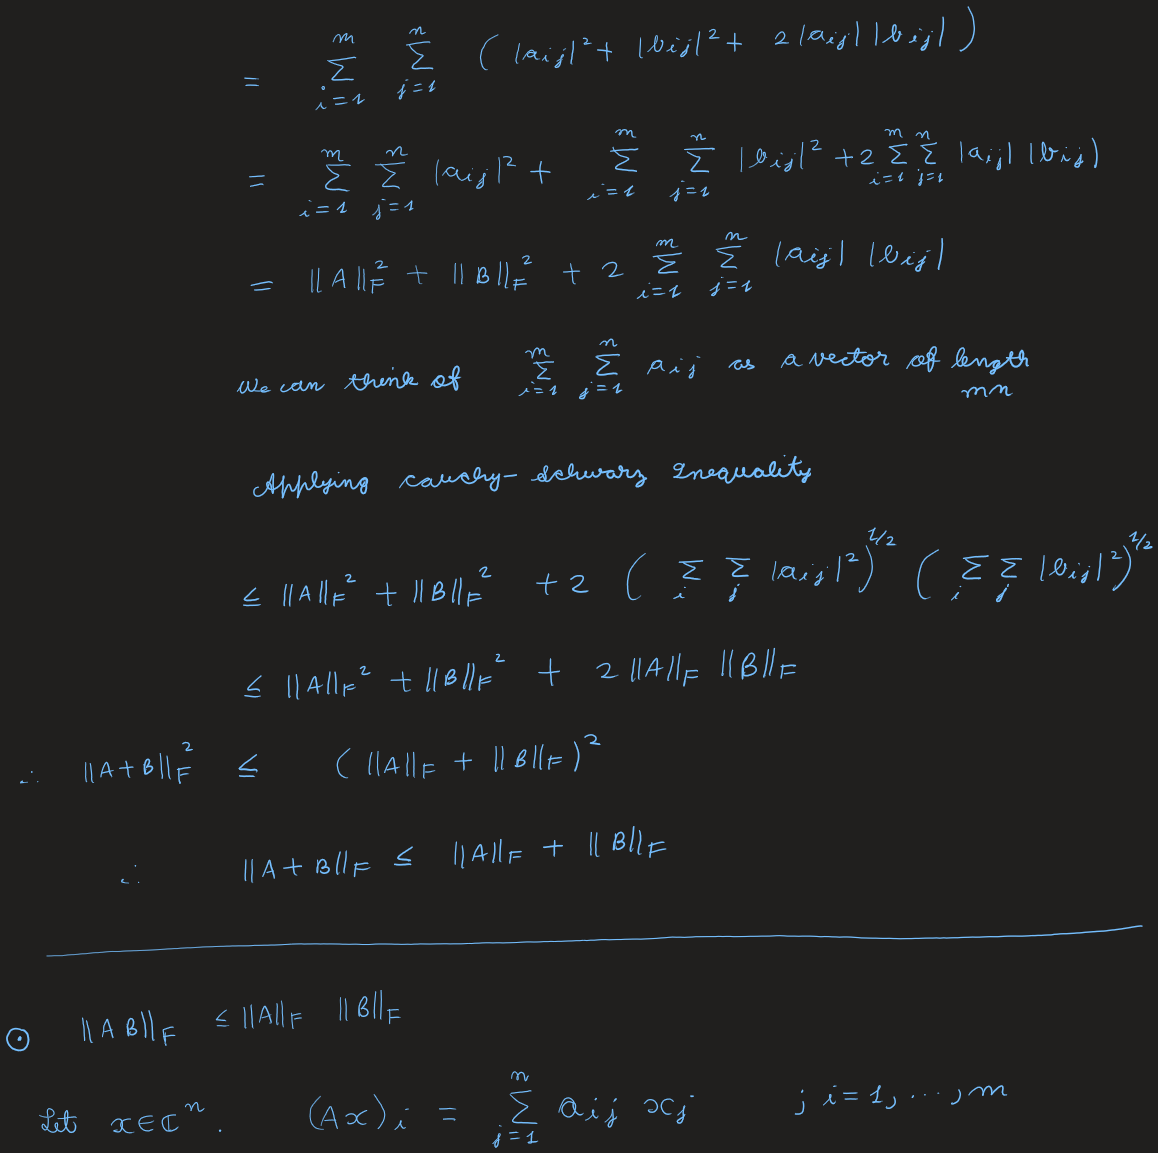 = \sum_{i=1}^{m} \sum_{j=1}^{n} ( |a_{ij}|^2 + |b_{ij}|^2 + 2 |a_{ij}| |b_{ij}| )
= \sum_{i=1}^{m} \sum_{j=1}^{n} |a_{ij}|^2 + \sum_{i=1}^{m} \sum_{j=1}^{n} |b_{ij}|^2 + 2 \sum_{i=1}^{m} \sum_{j=1}^{n} |a_{ij}| |b_{ij})
= ||A||_F^2 + ||B||_F^2 + 2 \sum_{i=1}^{m} \sum_{j=1}^{n} |a_{ij}| |b_{ij}|
We can think of \sum_{i=1}^{m} \sum_{j=1}^{n} a_{ij} as a vector of length
mn
Applying cauchy-schwarz Inequality
≤ ||A||_F^2 + ||B||_F^2 + 2 ( \sum_i \sum_j |a_{ij}|^2 )^{1/2} ( \sum_i \sum_j |b_{ij}|^2 )^{1/2}
≤ ||A||_F^2 + ||B||_F^2 + 2 ||A||_F ||B||_F
∴ ||A+B||_F^2 ≤ ( ||A||_F + ||B||_F )^2
∴ ||A+B||_F ≤ ||A||_F + ||B||_F
⊙ ||AB||_F ≤ ||A||_F ||B||_F
Let x∈ℂ^n. (Ax)_i = \sum_{j=1}^{n} a_{ij} x_j ; i=1, ..., m